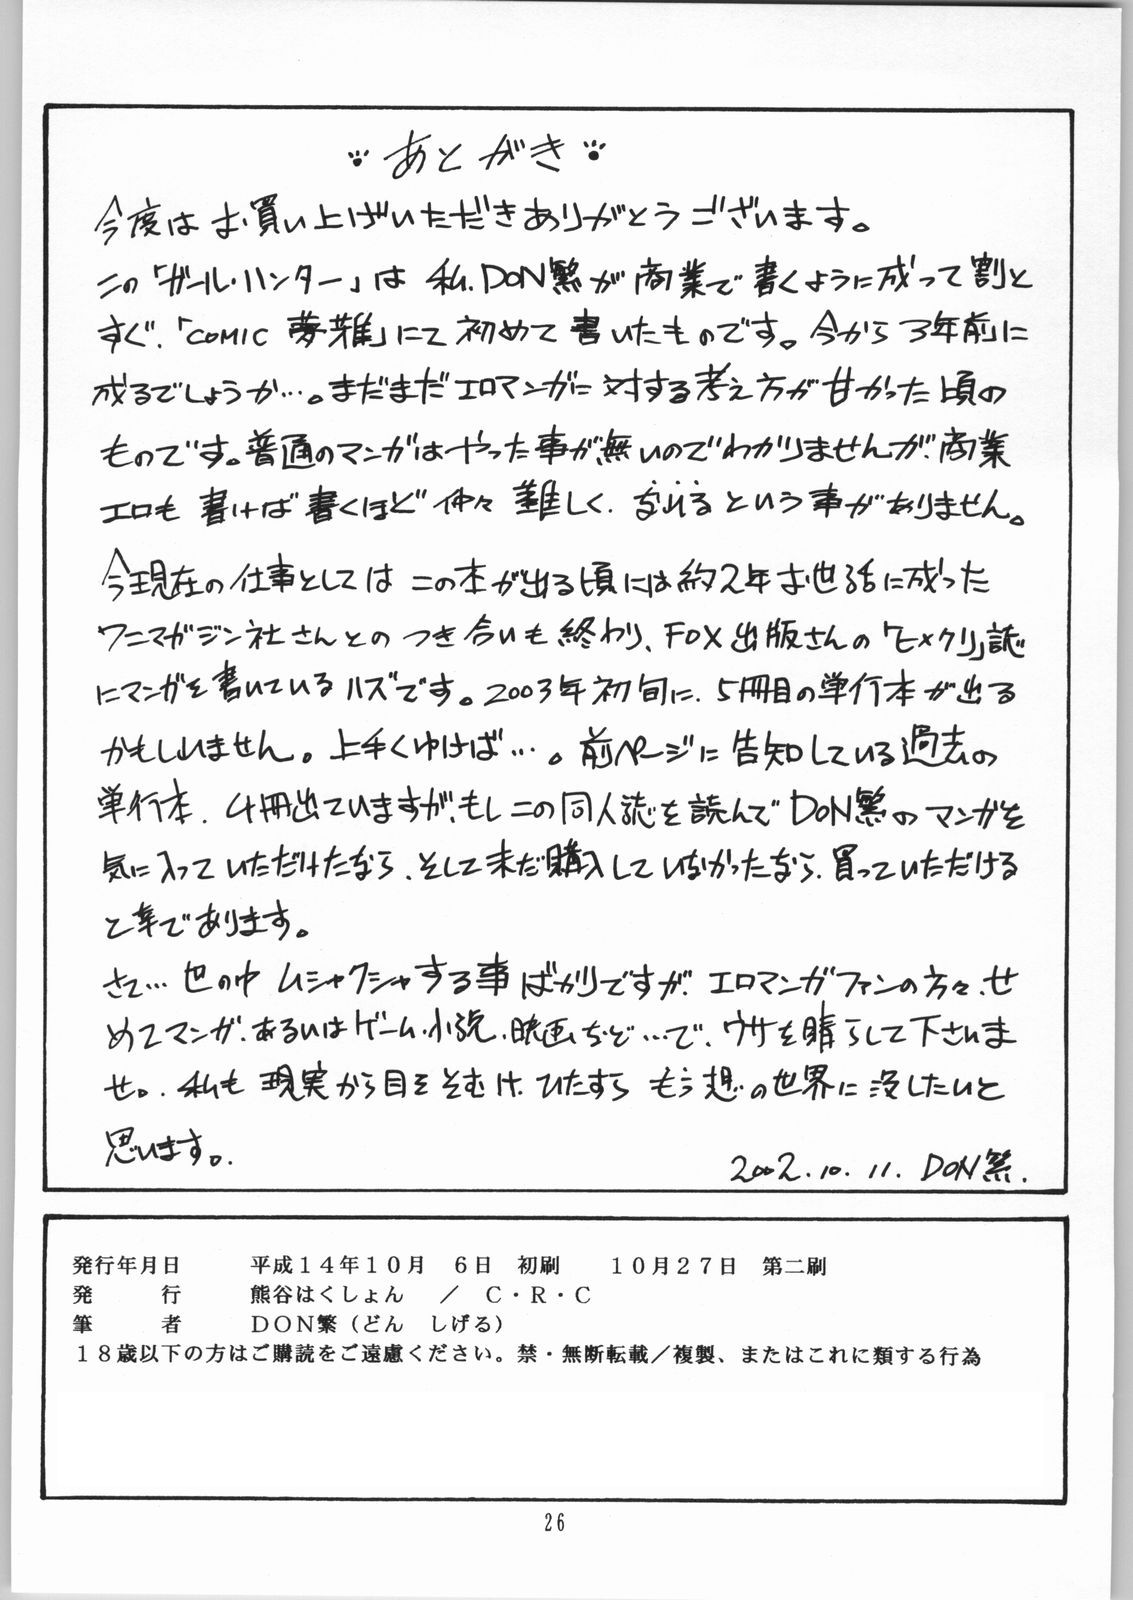 あとがき
今度はお買い上げいただきありがとうございます。
この「ガール・ハンター」は私、DON繁が商業で書くように成って割と
すぐ、「COMIC 夢雅」にて初めて書いたものです。今から3年前に
成るでしょうか…。まだまだエロマンガに対する考え方が甘かった頃の
ものです。普通のマンガはやった事が無いのでわかりませんが、商業
エロも書けば書くほど仲々難しく、なれるという事がありません。
今現在の仕事としてはこの本が出る頃には約2年お世話に成った
ワニマガジン社さんとのつき合いも終わり、FOX出版さんの「ヒメクリ」誌
にマンガを書いているハズです。2003年初旬に、5冊目の単行本が出る
かもしいません。上手くゆけば…。前ページに告知している過去の
単行本、4冊出ていますが、もしこの同人誌を読んでDON繁のマンガを
気に入っていただけたなら、そして未だ購入していなかったなら、買っていただける
と幸であります。
さて…世の中ムシャクシャする事ばかりですが、エロマンガファンの方々、せ
めてマンガ、あるいはゲーム、小説、映画など…で、ウサを晴らして下さいま
せ。私も現実から目をそむけ、ひたすらもう想の世界に没したいと
思います。
2002.10.11. DON繁.
発行年月日　平成14年10月 6日 初刷　10月27日 第二刷
発　行　熊谷はくしょん ／ C・R・C
筆　者　DON繁（どん しげる）
18歳以下の方はご購読をご遠慮ください。禁・無断転載／複製、またはこれに類する行為
26